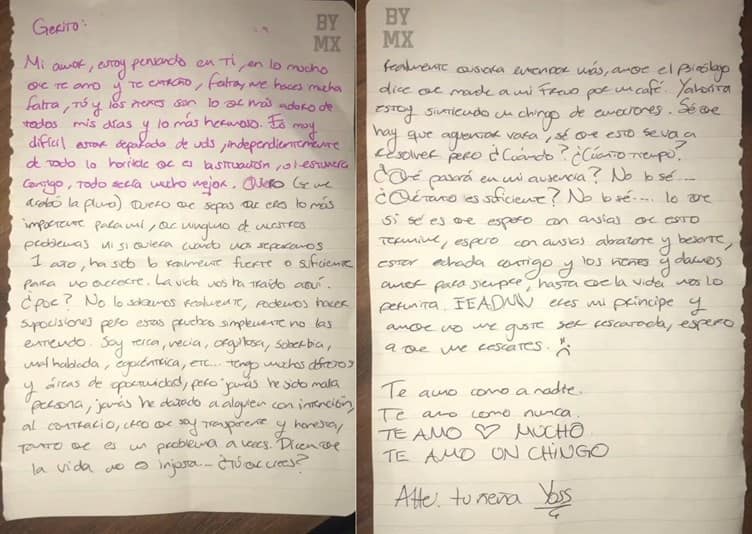 BY
MX
Gerito:
Mi amor, estoy pensando en Ti, en lo mucho
que te amo y te extraño, falta, me haces mucha
falta, tú y los nenes son lo que más adoro de
todos mis días y lo más hermoso. Es muy
difícil estar separada de uds, independientemente
de todo lo horrible que es la situación, si estuviera
contigo, todo sería mucho mejor. Quiero (se me
acabó la pluma) Quiero que sepas que eres lo más
importante para mí, que ninguno de nuestros
problemas ni si quiera cuando nos separamos
1 año, ha sido lo realmente fuerte o suficiente
para no amarte. La vida nos ha traído aquí.
¿por? No lo sabemos realmente, podemos hacer
suposiciones pero estas pruebas simplemente no las
entiendo. Soy terca, necia, orgullosa, soberbia,
mal hablada, egocéntrica, etc... tengo muchos defectos
y áreas de oportunidad, pero jamás he sido mala
persona, jamás he dañado a alguien con intención,
al contrario, creo que soy transparente y honesta,
tanto que es un problema a veces. Dicen que
la vida no es injusta... ¿Tú que crees?
BY
MX
realmente quisiera entender más, aunque el psicólogo
dice que mande a mi Freud por un café. Yahorita
estoy sintiendo un chingo de emociones. Sé que
hay que aguantar vara, sé que esto se va a
resolver pero ¿Cuándo? ¿Cuánto tiempo?
¿Qué pasará en mi ausencia? No lo sé...
¿Qué tanto es suficiente? No lo sé... lo que
si sé es que espero con ansias que esto
termine, espero con ansias abrazarte y besarte,
estar echada contigo y los nenes y darnos
amor para siempre, hasta que la vida nos lo
permita. FEADMV eres mi príncipe y
aunque no me guste ser rescatada, espero
a que me rescates. :(
Te amo como a nadie.
Te amo como nunca.
TE AMO ♡ MUCHO
TE AMO UN CHINGO
Atte. tu nena Yoss